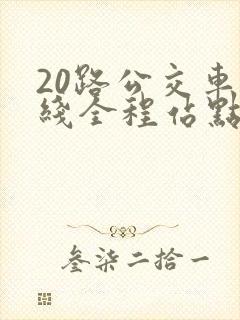 20路公交車
綫全程佔點
叁柒二拾一